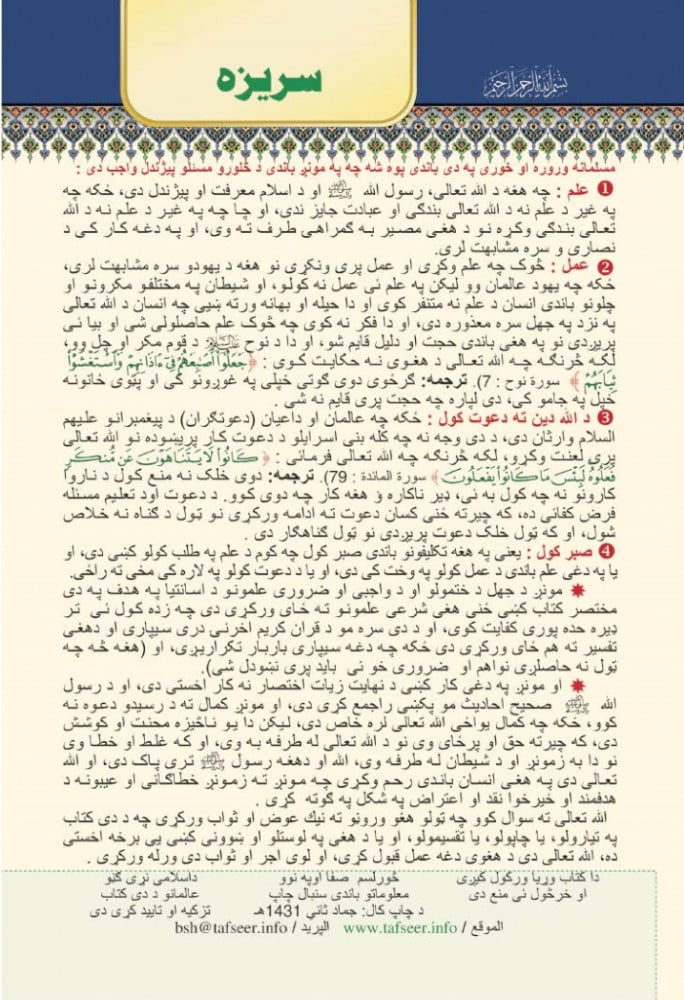 بسم الله الرحمن الرحيم
سريزه
مسلمانه وروره او خوری په دی باندی پوه شه چه په مونږ باندی د څلورو مسئلو پيژندل واجب دی :
❶ علم : چه هغه د الله تعالی، رسول الله ﷺ او د اسلام معرفت او پيژندل دی، ځکه چه
په غير د علم نه د الله تعالی بندګی او عبادت جايز ندی، او چا چه په غير د علم نه د الله
تعالی بندګی وکړه نو د هغی مصير به ګمراهی طرف ته وی، او په دغه کار کی د
نصاری و سره مشابهت لری.
❷ عمل : څوک چه علم وکړی او عمل پری ونکړی نو هغه د يهودو سره مشابهت لری،
ځکه چه يهود عالمان وو ليکن په علم ئی عمل نه کولو، او شيطان په مختلفو مکرونو او
چلونو باندی انسان د علم نه متنفر کوی او دا حيله او بهانه ورته ښيی چه انسان د الله تعالی
په نزد په جهل سره معذوره دی، او دا فکر نه کوی چه څوک علم حاصلولی شی او بيا ئی
پريږدی نو په هغی باندی حجت او دليل قايم شو، او دا د نوح عليه السلام د قوم مکر او چل وو،
لکه څرنګه چه الله تعالی د هغوی نه حکايت کوی : ﴿جَعَلُوٓاْ أَصَٰبِعَهُمۡ فِيٓ ءَاذَانِهِمۡ وَٱسۡتَغۡشَوۡاْ
ثِيَابَهُمۡ﴾ سورة نوح : 7). ترجمه: ګرځوی دوی ګوتی خپلی په غوږونو کی او پټوی ځانونه
خپل په جامو کی، دی لپاره چه حجت پری قايم نه شی .
❸ د الله دين ته دعوت کول : ځکه چه عالمان او داعيان (دعوتګران) د پيغمبرانو عليهم
السلام وارثان دی، د دی وجه نه چه کله بنی اسرايلو د دعوت کار پريښوده نو الله تعالی
پری لعنت وکړو، لکه څرنګه چه الله تعالی فرمائی : ﴿كَانُواْ لَا يَتَنَاهَوۡنَ عَن مُّنكَرٖ
فَعَلُوهُۚ لَبِئۡسَ مَا كَانُواْ يَفۡعَلُونَ﴾ سورة المائدة : 79). ترجمه: دوی خلک نه منع کول د ناروا
کارونو نه چه کول به ئی، ډير ناکاره ؤ هغه کار چه دوی کوو. د دعوت اود تعليم مسئله
فرض کفائی ده، که چيرته ځنی کسان دعوت ته ادامه ورکړی نو ټول د ګناه نه خلاص
شول، او که ټول خلک دعوت پريږدی نو ټول ګناهګار دی .
❹ صبر کول : يعنی په هغه تکليفونو باندی صبر کول چه کوم د علم په طلب کولو کښی دی، او
يا په دغی علم باندی د عمل کولو په وخت کی دی، او يا د دعوت کولو په لاره کی مخی ته راځی.
مونږ د جهل د ختمولو او د واجبی او ضروری علمونو د اسانتيا په هدف په دی
مختصر کتاب کښی ځنی هغی شرعی علمونو ته ځای ورکړی دی چه زده کول ئی تر
ډيره حده پوری کفايت کوی، او د دی سره مو د قران کريم اخرنی دری سيپاری او دهغی
تفسير ته هم ځای ورکړی دی ځکه چه دغه سيپاری باربار تکراريږی، او (هغه څه چه
ټول نه حاصلږی نوهم او ضروری خو ئی بايد پری نښودل شی).
او مونږ په دغی کار کښی د نهايت زيات اختصار نه کار اخستی دی، او د رسول
الله ﷺ صحيح احاديث مو پکښی راجمع کړی دی، او مونږ کمال ته د رسيدو دعوه نه
کوو، ځکه چه کمال يواځی الله تعالی لره خاص دی، ليکن دا يو ناڅيزه محنت او کوشش
دی، که چيرته حق او پرځای وی نو د الله تعالی له طرفه به وی، او که غلط او خطا وی
نو دا به زمونږ او د شيطان له طرفه وی، او الله او دهغه رسول ﷺ تری پاک دی، او الله
تعالی دی په هغی انسان باندی رحم وکړی چه مونږ ته زمونږ خطاګانی او عيبونه د
هدفمند او خيرخوا نقد او اعتراض په شکل په ګوته کړی .
الله تعالی ته سوال کوو چه ټولو هغو ورونو ته نيك عوض او ثواب ورکړی چه د دی کتاب
په تيارولو، يا چاپولو، يا تقسيمولو، او يا د هغی په لوستلو او ښوونی کښی يی برخه اخستی
ده، الله تعالی دی د هغوی دغه عمل قبول کړی، او لوی اجر او ثواب دی ورله ورکړی .
دا کتاب وړيا ورکول کيږی
او خرڅول ئی منع دی
څورلسم صفا اوپه نوو
معلوماتو باندی سنبال چاپ
د چاپ کال: جماد ثاني 1431هـ
داسلامی نړی ګڼو
عالمانو د دی کتاب
تزکيه او تاييد کړی دی
الموقع / www.tafseer.info البريد / bsh@tafseer.info